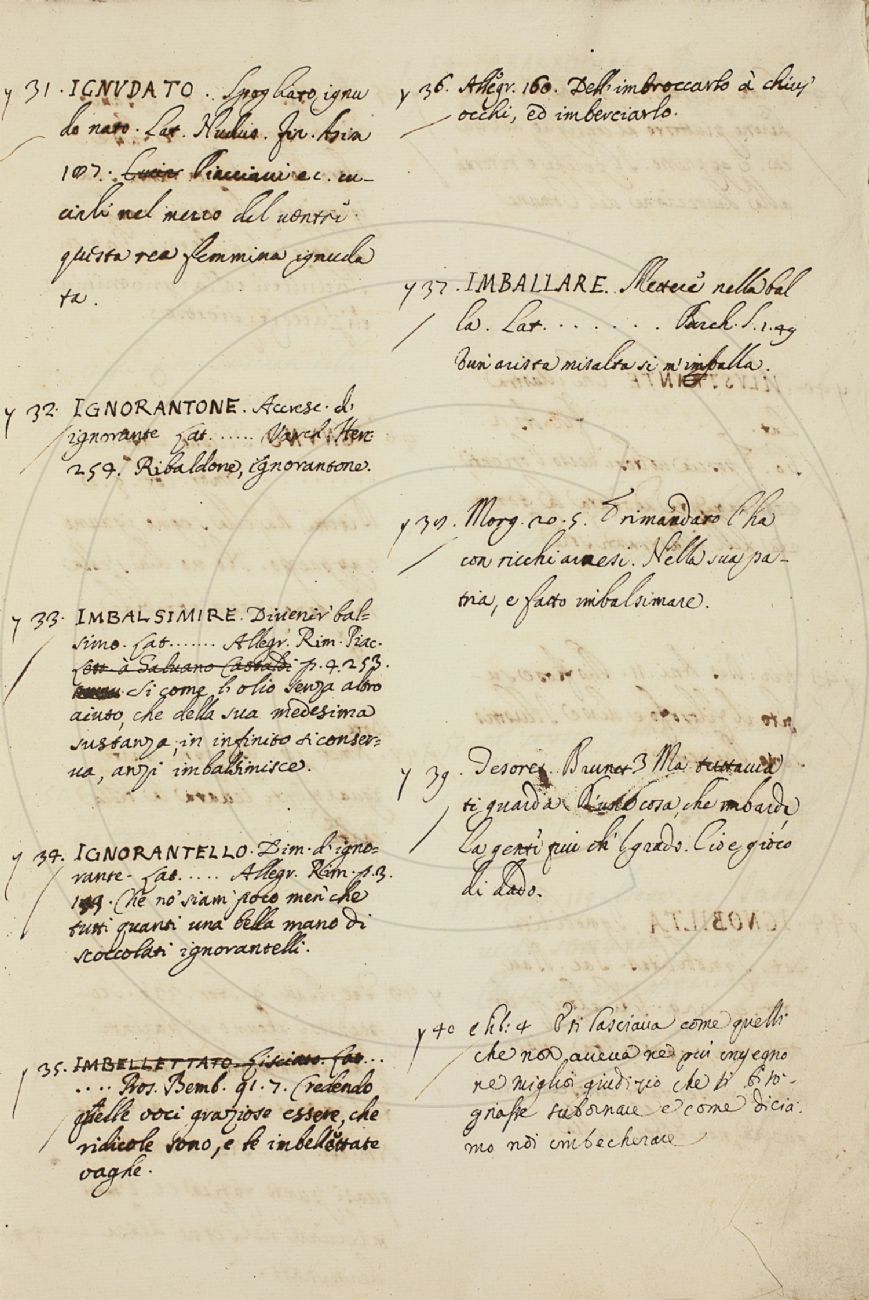 y 31. IGNVDATO. Spogliato, ignu
do nato. Lat. Nudus. Fir. Asin
107. ec. cu-
cirli nel mezzo del ventre
questa rea femmina ignuda
ta.
y 32. IGNORANTONE. Accresc. di
ignorante Lat...... Varch. Herc.
254. Ribaldone, ignorantone.
y 33. IMBALSIMIRE. Divenir bal=
simo. Lat....... Allegr. Rim. Piac.
Lett. à p. 4. 253.
Si come l'olio senza altro
aiuto, che della sua medesima
sustanza, in infinito si conser=
va, anzi imbalsimisce.
y 34. IGNORANTELLO. Dim. d'igno=
rante. Lat..... Allegr. Rim. p. 3.
Che no' siam' poco men' che
tutti quanti una bella mano di
scoccolati ignorantelli.
y 35. IMBELLETTATO. Lisciato. Lat...
.... Pros. Bemb. 91. 7. Credendo
quelle voci graziose essere, che
ridicole sono, e le imbellettate
vaghe.
y 36. Allegr. 160. Dell'imbroccarlo à chius'
occhi, ed imberciarlo.
y 37. IMBALLARE. Mettere nella bal
la. Lat. . . . . . . . Burch. S. 1. 49
D'un arista misalta si m'imballa.
y 38. Morg. 20. 5. E rimandaro l'ha
con ricchi arnesi. Nella sua pa-
tria, e fatto imbalsimare.
y 39. Tesoret. Brunet 3 Ma tuttavia
ti guarda D'una cosa, che imbarda
La gente più ch'l grado. Cioè gioco
di dado.
y 40 e lib: 4 si lasciava come quelli
che non aveva ne più ingegno
ne miglior giudizio che si biso-
gnasse subornare e come dicia
mo noi imbecherare